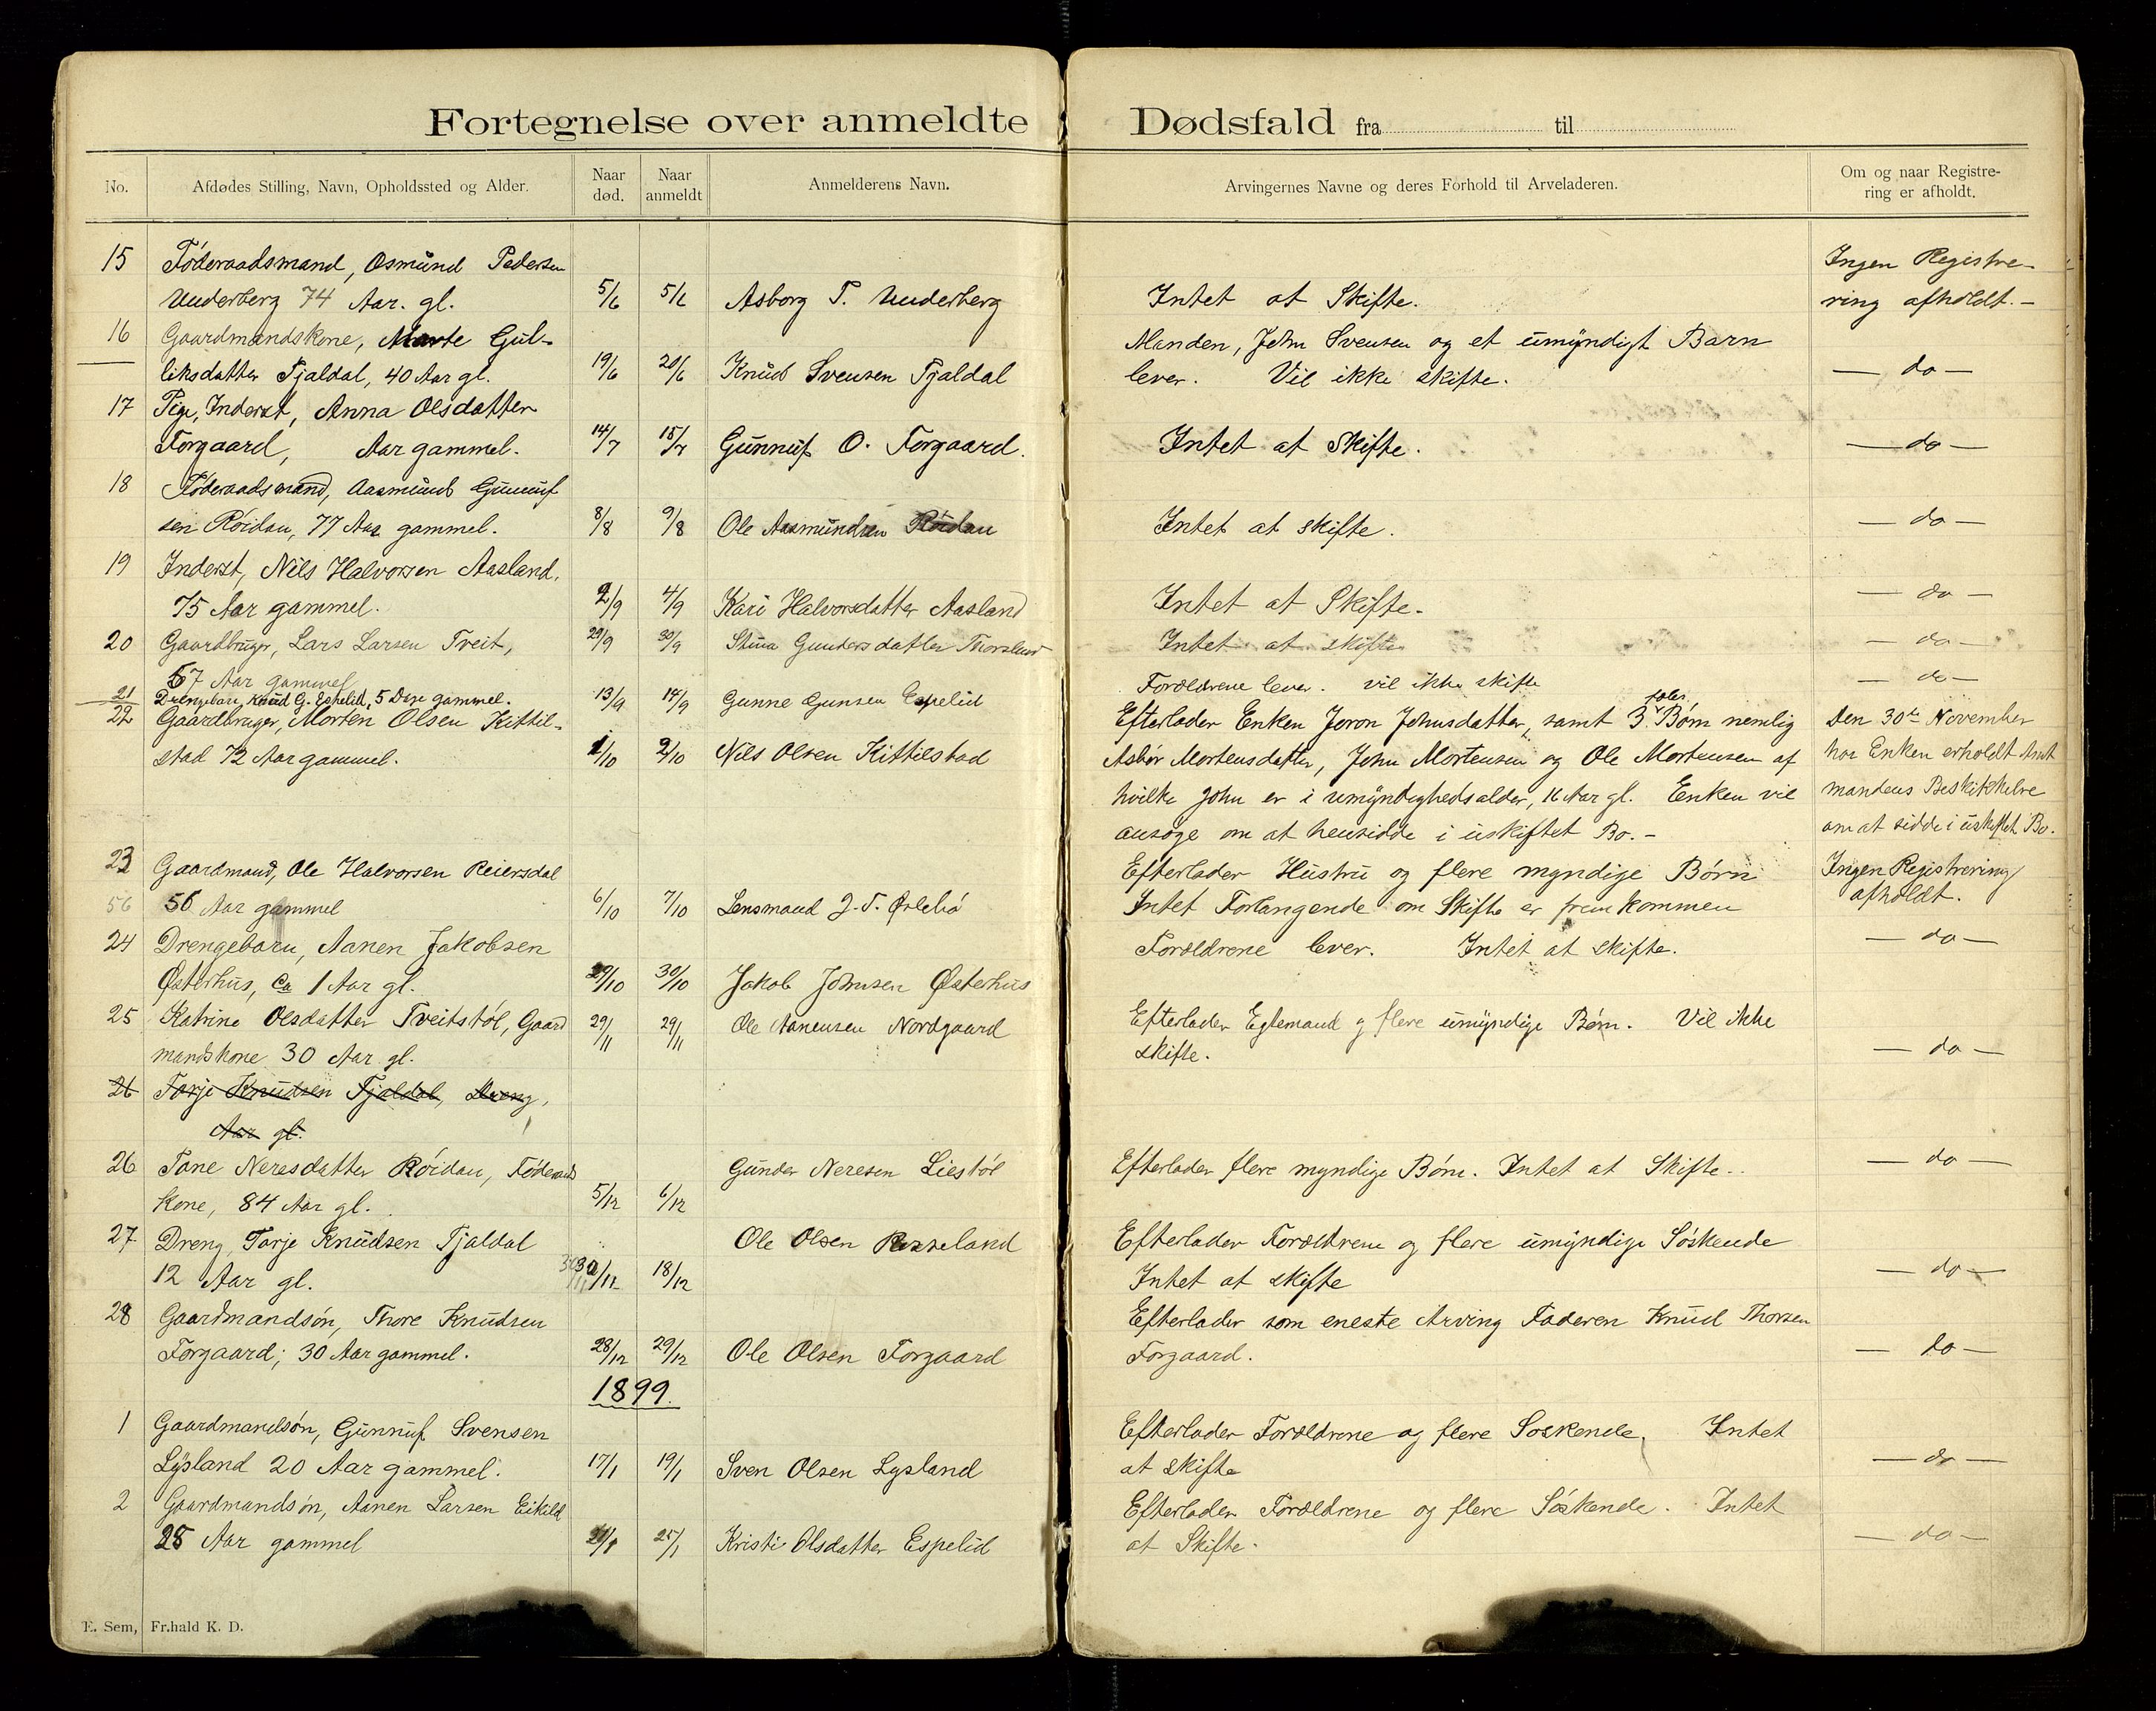 Fortegnelse over anmeldte Dødsfald fra til
No. Afdødes Stilling, Navn, Opholdssted og Alder. Naar død. Naar anmeldt Anmelderens Navn. Arvingernes Navne og deres Forhold til Arveladeren. Om og naar Registrering er afholdt.
15 Föderaadsmand, Osmund Pedersen Ingen Registre-
Underberg 74 Aar. gl. 5/6 5/6 Asborg T. Underberg Intet at Skifte. ring afholdt. -
16 Gaardmandskone, Marte Gul- Manden, John Svensen og et umyndigt Barn
liksdatter Tjaldal, 40 Aar gl. 19/6 20/6 Knud Svensen Tjaldal lever. Vil ikke skifte. — do —
17 Pige, Inderst, Anna Olsdatter
Forgaard, Aar gammel. 14/7 15/7 Gunnuf O. Forgaard. Intet at Skifte. — do —
18 Föderaadsmand, Aasmund Gunnuf
sen Röidan, 77 Aar gammel. 8/8 9/8 Ole Aasmundsen Röidan Intet at skifte. — do —
19 Inderst, Nils Halvorsen Aasland,
75 Aar gammel. 2/9 4/9 Kari Halvorsdatter Aasland Intet at Skifte. — do —
20 Gaardbruger, Lars Larsen Tveit, 29/9 30/9 Stina Gundersdatter Intet at skifte — do —
67 Aar gammel
21 Drengebarn, Knud G. Espelid, 5 Dage gammel. 13/9 14/9 Gunne Gunsen Espelid Forældrene lever. vil ikke skifte — do —
22 Gaardbruger, Morten Olsen Kittil- Efterlader Enken Joron Johnsdatter, samt 3 Børn nemlig Den 30te November
stad 72 Aar gammel. 1/10 2/10 Nils Olsen Kittilstad Asbör Mortensdatter, John Mortensen og Ole Mortensen af har Enken erholdt Amt
hvilke John er i umyndighedsalder, 16 Aar gl. Enken vil mandens
ansöge om at hensidde i uskiftet Bo. - om at sidde i uskiftet Bo.
23 Gaardmand, Ole Halvorsen Reiersdal Efterlader Hustru og flere myndige Börn Ingen Registrering
56 56 Aar gammel 6/10 7/10 Lensmand J. T. Örlebö Intet Forlangende om Skifte er fremkommen afholdt.
24 Drengebarn, Aanen Jakobsen Forældrene lever. Intet at skifte. — do —
Østerhus, Ca 1 Aar gl. 29/10 30/10 Jakob Johnsen Østerhus
25 Katrine Olsdatter Tveitstöl, Gaard 29/11 29/11 Ole Aanensen Nordgaard Efterlader Egtemand og flere umyndige Börn. Vil ikke
mandskone 30 Aar gl. skifte. — do —
26 Torje Knudsen Tjaldal, Dreng,
Aar gl.
26 Tone Neresdatter Röidan, Föderaads Gunder Neresen Liestöl Efterlader flere myndige Börn. Intet at Skifte. — do —
kone, 84 Aar gl. 5/12 6/12
27 Dreng, Torje Knudsen Tjaldal Ole Olsen Rosseland Efterlader Forældrene og flere umyndige Söskende
12 Aar gl. 30/11 18/12 Intet at skifte — do —
28 Gaardmandsön, Thore Knudsen Efterlader som eneste Arving Faderen Knud Thorsen
Forgaard; 30 Aar gammel. 28/12 29/12 Ole Olsen Forgaard Forgaard. — do —
1899.
1 Gaardmandsön, Gunnuf Svensen Efterlader Forældrene og flere Soskende. Intet
Lysland 20 Aar gammel. 17/1 19/1 Sven Olsen Lysland at skifte — do —
2 Gaardmandsön, Aanen Larsen Eikild Efterlader Forældrene og flere Söskende. Intet
25 Aar gammel 25/1 Kristi Olsdatter Espelid at Skifte. — do —
E. Sem, Fr.hald K. D.